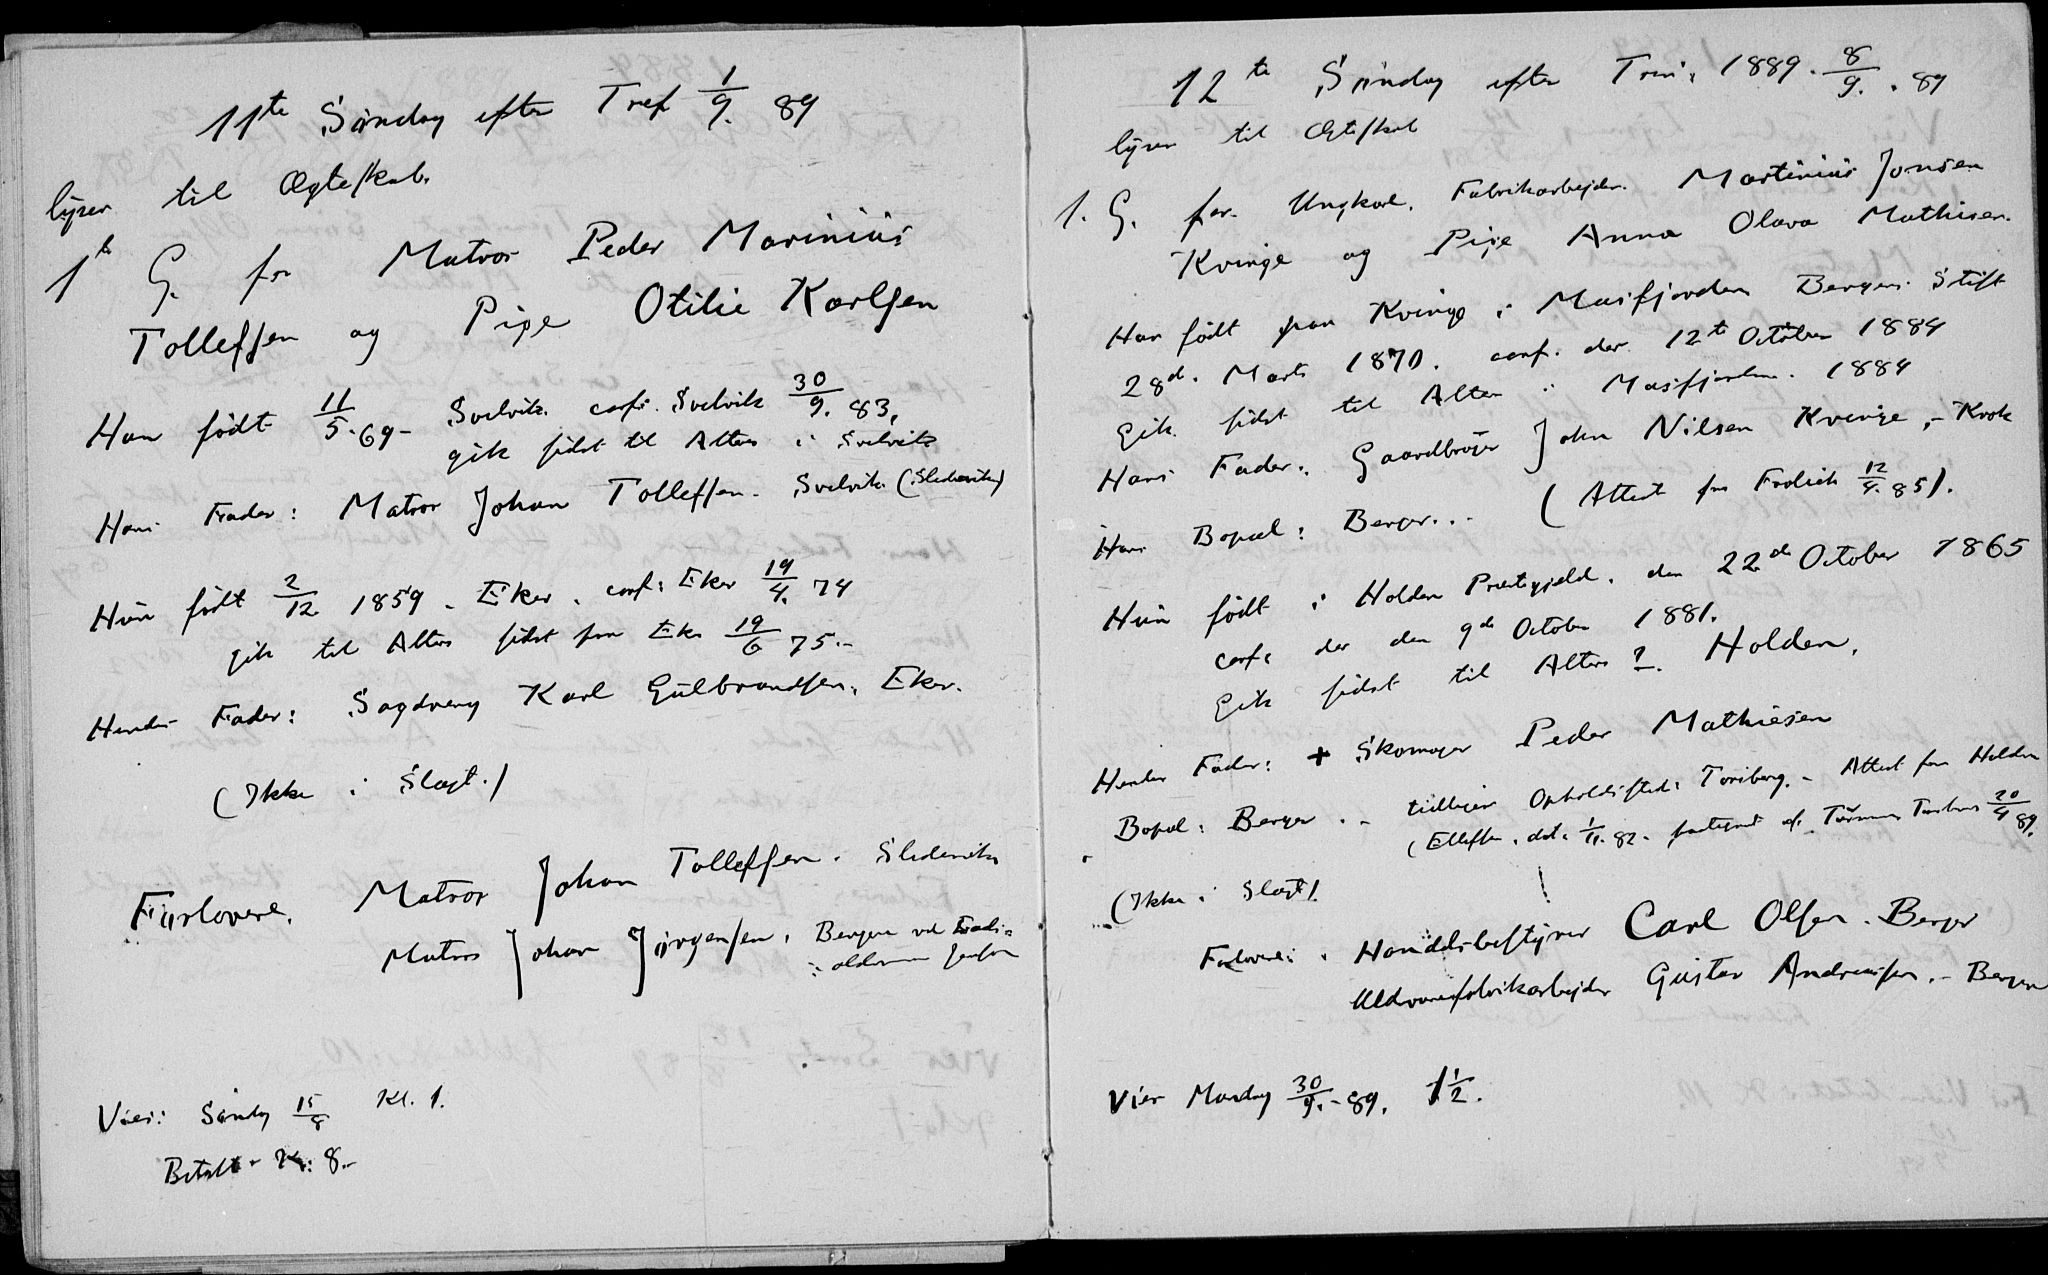 11te Søndag efter Tref 1/9. 89
lyser til Ægteskab.
1te G. for Matros Peder Marinius
Tollefsen og Pige Otilie Karlsen
Han født 11/5. 69 - Svelvik. conf. Svelvik 30/9. 83,
gik sidst til Alters i Svelvik
Hans Fader: Matros Johan Tollefsen. Svelvik
Hun født 2/12 1859. Eker. conf: Eker 19/4. 74
gik til Alters sidst fra Eker 19/6 75.-
Hendes Fader: Sagdreng Karl Gulbrandsen, Eker.
(Ikke i Slægt.)
Forlovere. Matros Johan Tollefsen.
Matros Johan Jørgensen, Bergen ved
Vies: Søndag 15/8 Kl. 1.
Betalt - Kr: 8.-
12te Søndag efter Trin. 1889. 8/9. . 89
lyses til Ægteskab
1. G. for Ungkarl. Fabrikarbejder. Martinius Jonsen
Kvinge og Pige Anna Olava Mathisen.
Han født paa Kvinge i Masfjorden Bergens Stift
28d. Marts 1870. conf. der 12te October 1884
Gik sidst til Alters i Masfjorden. 1884
Hans Fader: Gaardbruger John Nilsen Kvinge, -
Hans Bopæl: Berger. . . (Attest fra 12/4. 85).
Hun født i Holden Præstegjeld. den 22de October 1865
conf: der den 9de October 1881.
Gik sidst til Alters ?. Holden.
Hendes Fader: + Skomager Peder Mathiesen
Bopæl: Berger. - tidligere Opholdssted: - Attest fra Holden
(Ikke i Slægt).
Forlovere: Handelsbestyrer Carl Olsen. Berger
Uldvarefabrikarbejder Gustav Andreassen. - Berger
Vies Mandag 30/9. - 89. 1 1/2.